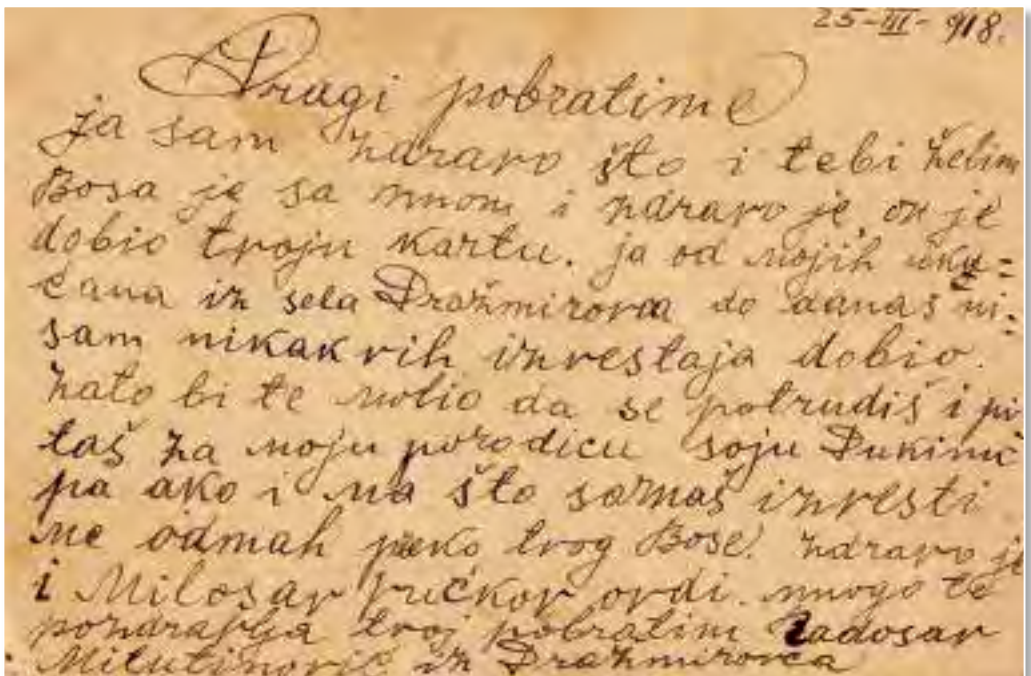 25-III-918.
Dragi pobratime
ja sam zdravo što i tebi želim
Bosa je sa mnom i zdravo je, on je
dobio tvoju kartu. ja od mojih uku=
ćana iz sela Dražmirovca do danas ni=
sam nikakvih izvestaja dobio.
zato bi te molio da se potrudiš i pi
taš za moju porodicu soju Đukinu
pa ako i ma što saznaš izvesti
me odmah preko tvog Bose. zdravo je
i Milosav ovdi. mnogo te
pozdravlja tvoj pobratim Radosav
Milutinović iz Dražmirovca